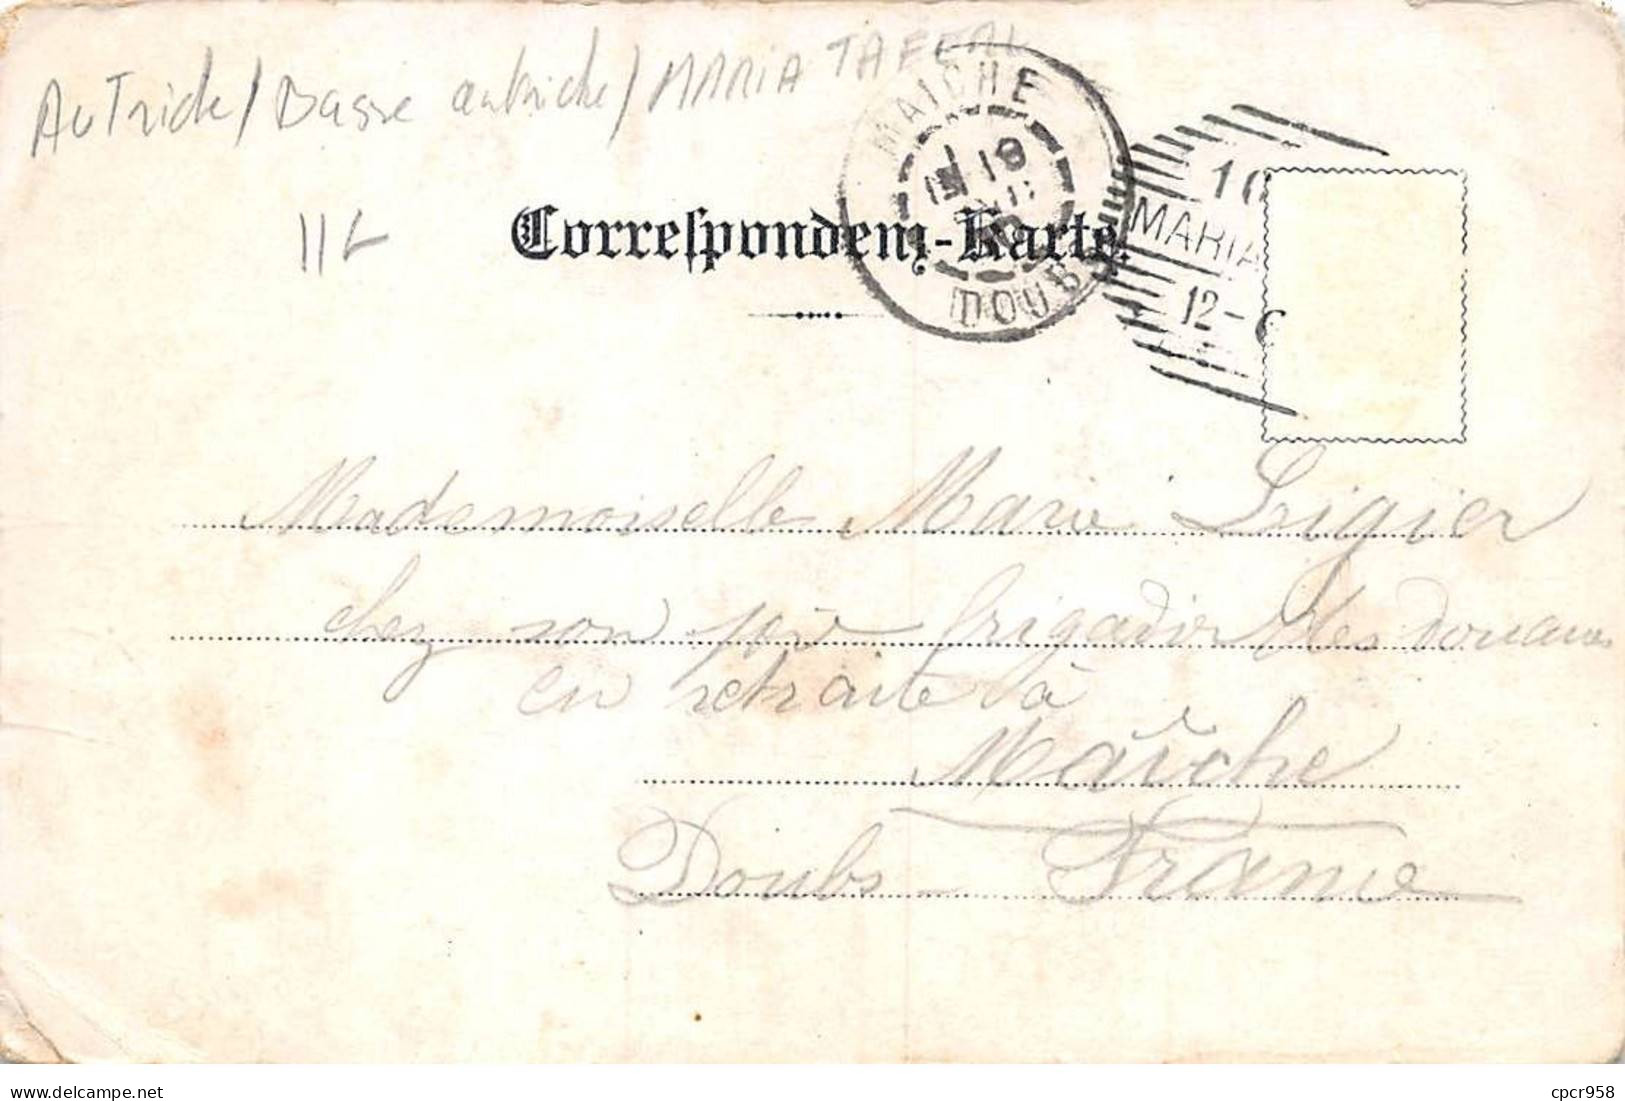 AuTriche / Basse autriche / MARIA TAFERL
MAICHE
18
DOUBS
Correspondenz-Karte.
MARIA
12-6
Mademoiselle Marie Ligier
chez son père brigadier des douanes
en retraite à
Maîche
Doubs - France
cpcr958